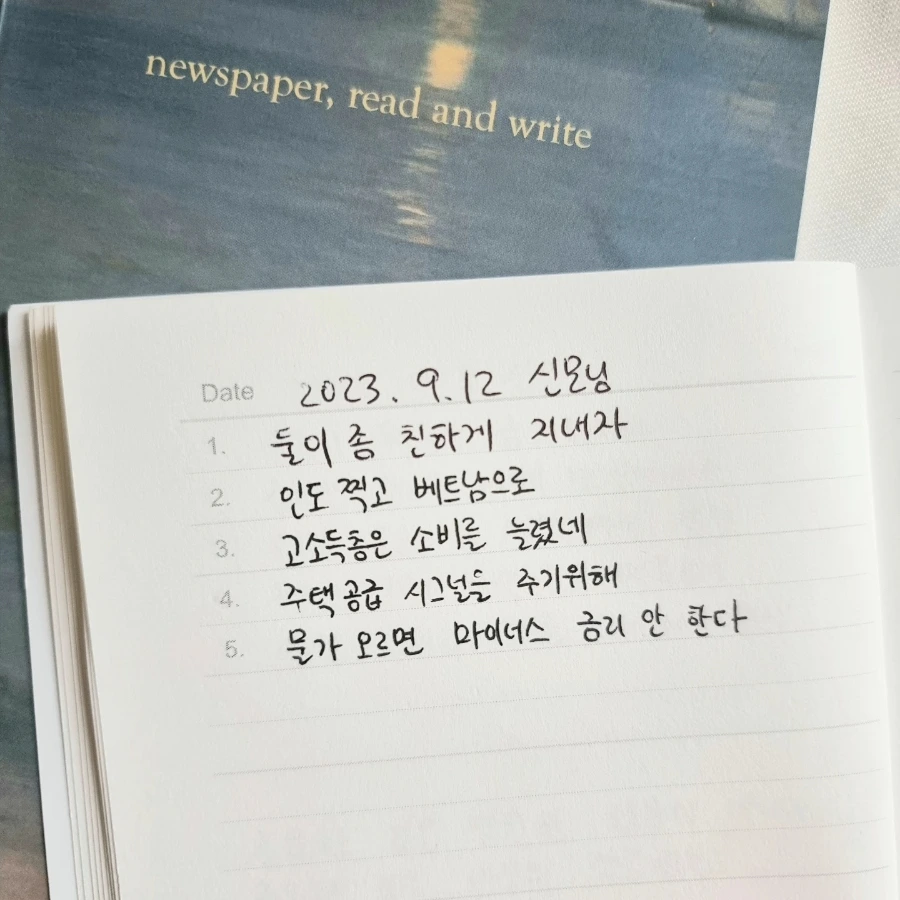 newspaper, read and write
Date 2023. 9. 12 신모닝
1. 둘이 좀 친하게 지내자
2. 인도 찍고 베트남으로
3. 고소득층은 소비를 늘렸네
4. 주택공급 시그널을 주기위해
5. 물가 오르면 마이너스 금리 안 한다